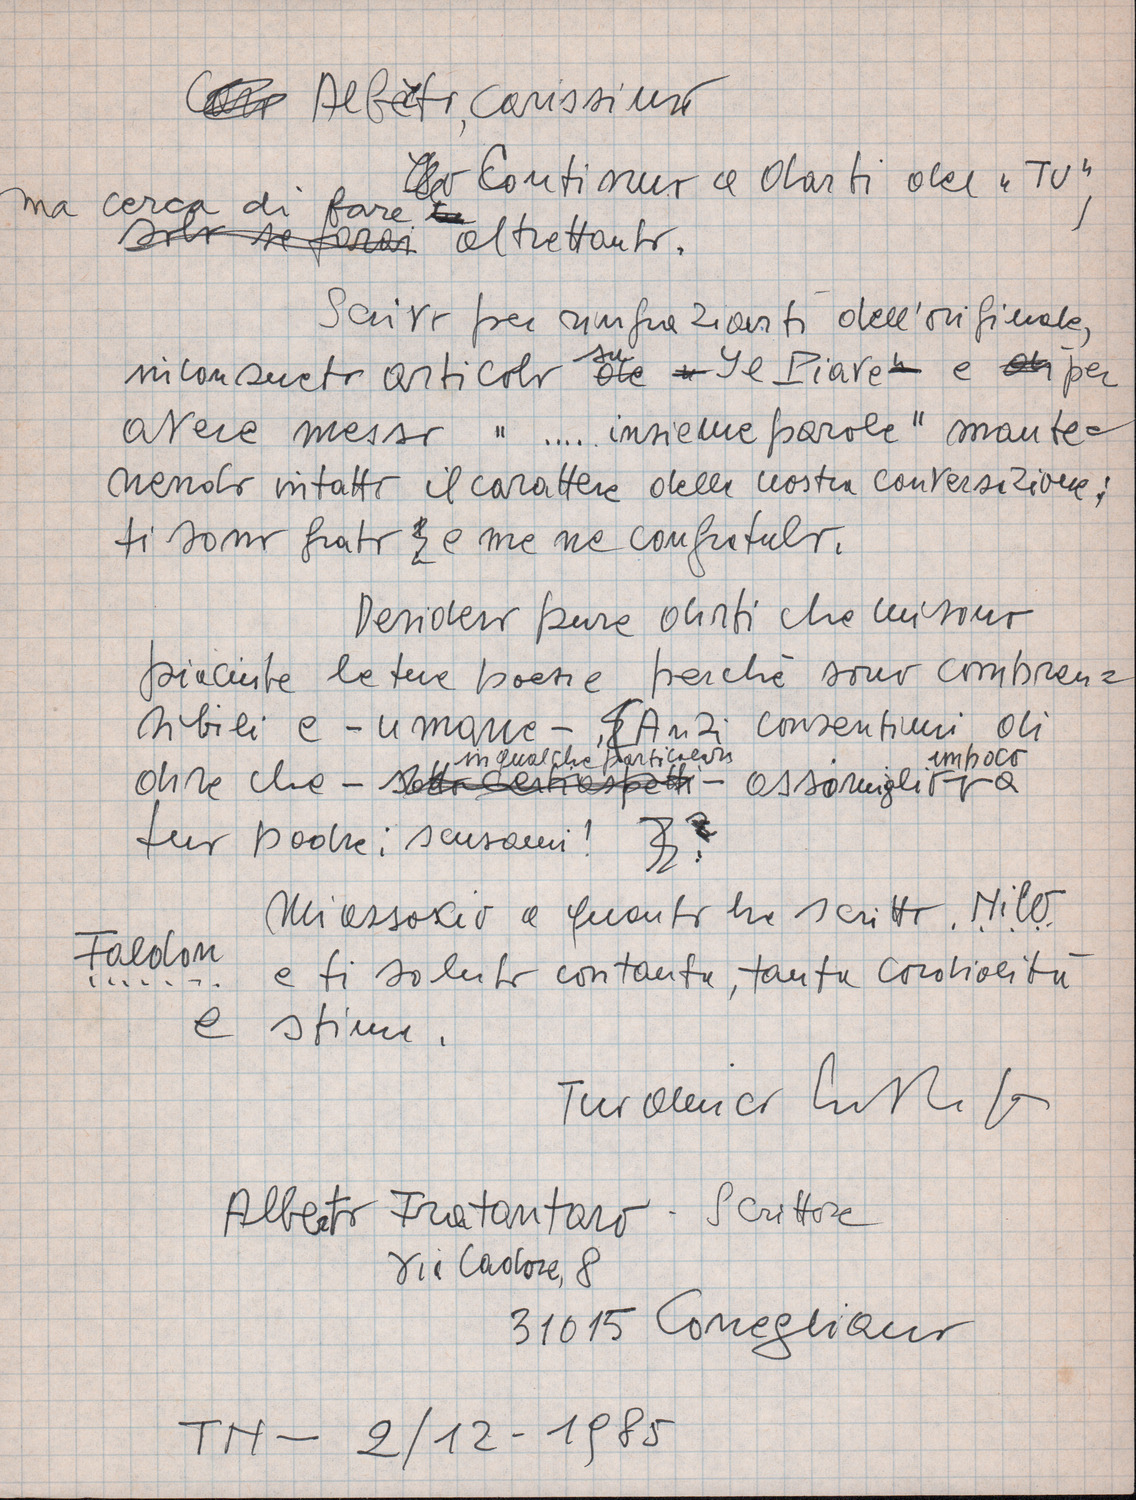 Alberto, carissimo
Continuo a darti del "TU",
ma cerca di fare
solo se farai altrettanto.
Scrivo per ringraziarti dell'originale,
inconsueto articolo su Il Piave e per
avere messo " .... insieme parole" mante=
nendo intatto il carattere della nostra conversazione;
ti sono grato e me ne congratulo.
Desidero pure dirti che mi sono
piaciute le tue poesie perchè sono compren=
sibili e - umane -, Anzi consentimi di
in qualche particolare un poco
dire che - sotto certi aspetti - assomigli a
tuo padre; scusami!
Mi associo a quanto ha scritto Nilo
Faldon e ti saluto con tanta, tanta cordialità
e stima.
Tuo amico
Alberto Fratantaro - Scrittore
via Cadore, 8
31015 Conegliano
TN - 2/12 - 1985